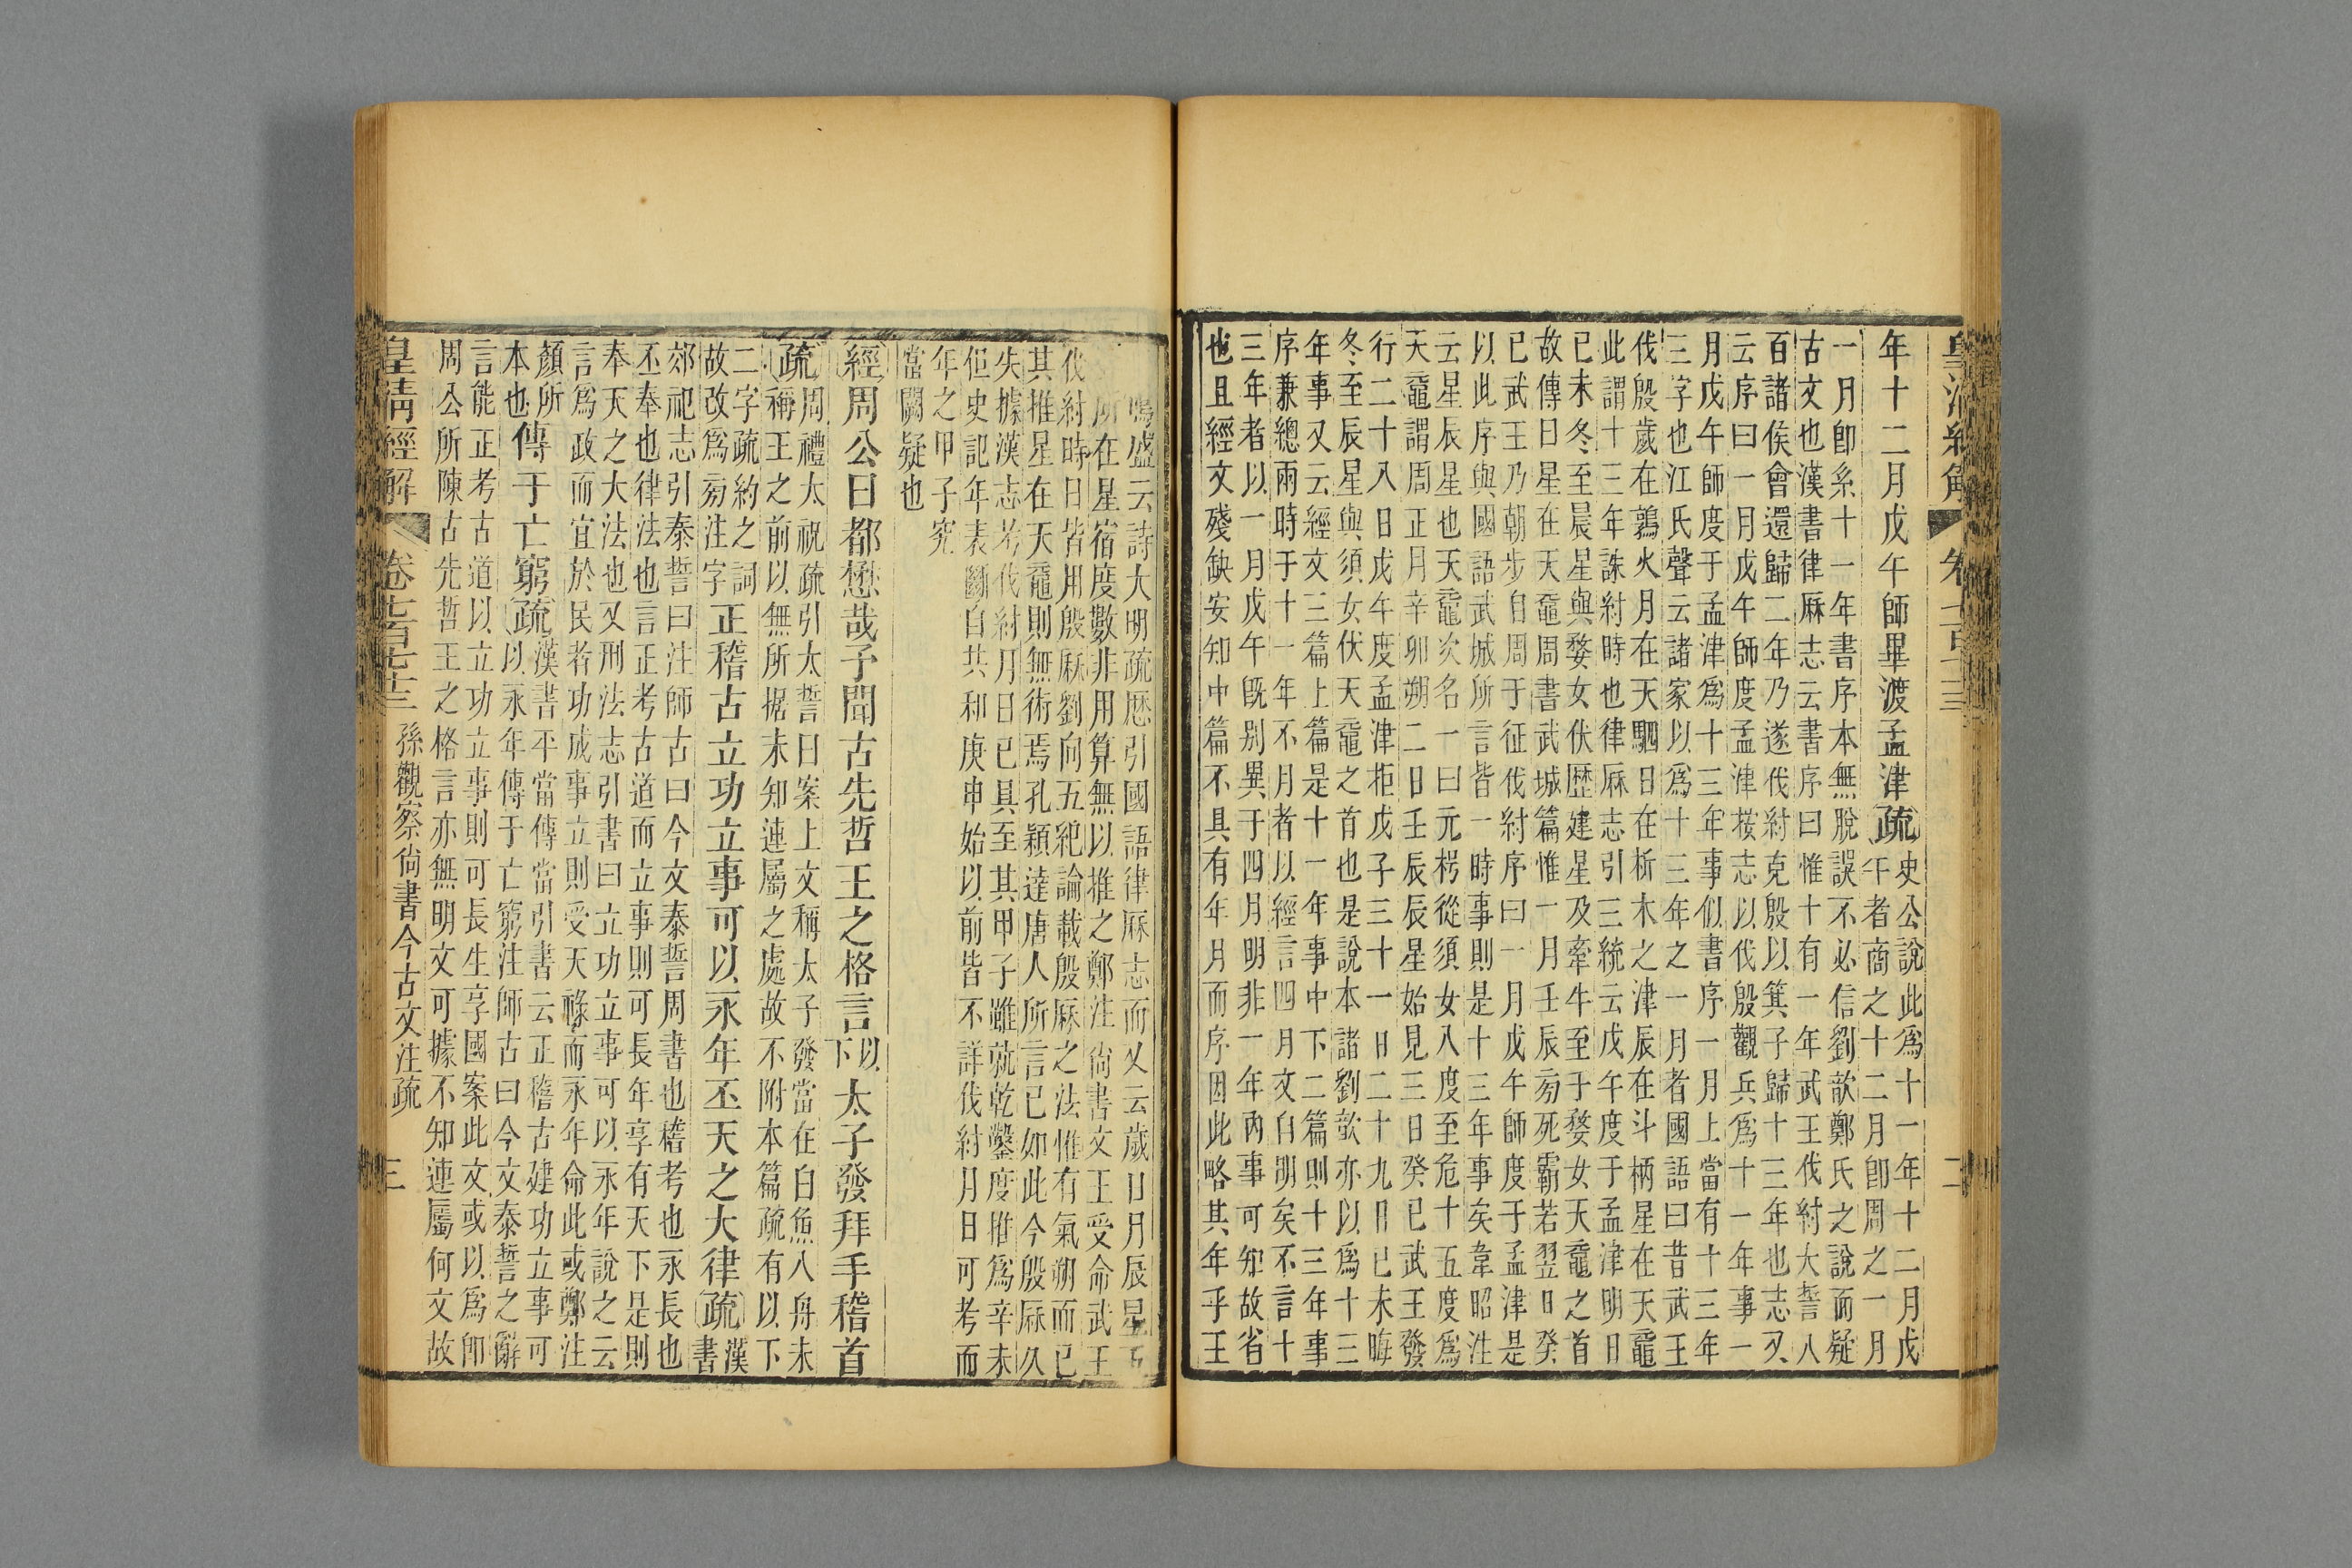 年十二月戊午師畢渡孟津疏
史公說此爲十一年十二月戊
午者商之十二月卽周之一月
一月卽系十一年書序本無脫誤不必信劉歆鄭氏之說而疑
古文也漢書律厤志云書序曰惟十有一年武王伐紂大誓八
百諸侯會還歸二年乃遂伐紂克殷以箕子歸十三年也志又
云序曰一月戊午師度孟津按志以伐殷觀兵爲十一年事一
月戊午師度于孟津爲十三年事似書序一月上當有十三年
三字也江氏聲云諸家以爲十三年之一月者國語曰昔武王
伐殷歲在鶉火月在天駟日在析木之津辰在斗柄星在天黿
此謂十三年誅紂時也律厤志引三統云戊午度于孟津明日
已未冬至晨星與婺女伏歷建星及牽牛至于婺女天黿之首
故傳曰星在天黿周書武城篇惟一月壬辰旁死霸若翌日癸
已武王乃朝步自周于征伐紂序曰一月戊午師度于孟津是
以此序與國語武城所言皆一時事則是十三年事矣韋昭注
云星辰星也天黿次名一曰元枵從須女八度至危十五度爲
天黿謂周正月辛卯朔二日壬辰辰星始見三日癸已武王發
行二十八日戊午度孟津拒戊子三十一日二十九日已未晦
冬至辰星與須女伏天黿之首也是說本諸劉歆亦以爲十三
年事又云經文三篇上篇是十一年事中下二篇則十三年事
序兼總兩時于十一年不月者以經言四月文自明矣不言十
三年者以一月戊午旣别異于四月明非一年內事可知故省
也且經文殘缺安知中篇不具有年月而序因此略其年乎王
鳴盛云詩大明疏歷引國語律厤志而又云歲日月辰星五
所在星宿度數非用算無以推之鄭注尙書文王受命武王
伐紂時日皆用殷厤劉向五紀論載殷厤之法惟有氣朔而已
其推星在天黿則無術焉孔穎達唐人所言已如此今殷厤久
失據漢志考伐紂月日已具至其甲子雖就乾鑿度推爲辛未
但史記年表斷自共和庚申始以前皆不詳伐紂月日可考而
年之甲子究
當闕疑也
經周公曰都懋哉予聞古先哲王之格言以下太子發拜手稽首
疏周禮太祝疏引太誓曰案上文稱太子發當在白魚入舟未
稱王之前以無所据未知連屬之處故不附本篇疏有以下
二字疏約之詞
故改爲旁注字正稽古立功立事可以永年丕天之大律疏漢書
郊祀志引泰誓曰注師古曰今文泰誓周書也稽考也永長也
丕奉也律法也言正考古道而立事則可長年享有天下是則
奉天之大法也又刑法志引書曰立功立事可以永年說之云
言爲政而宜於民者功成事立則受天祿而永年命此或鄭注
顏所
本也傳于亡窮疏漢書平當傳當引書云正稽古建功立事可
以永年傳于亡窮注師古曰今文泰誓之辭
言能正考古道以立功立事則可長生享國案此文或以爲卽
周公所陳古先哲王之格言亦無明文可據不知連屬何文故
皇清經解 卷七百七十三 孫觀察尙書今古文注疏 三